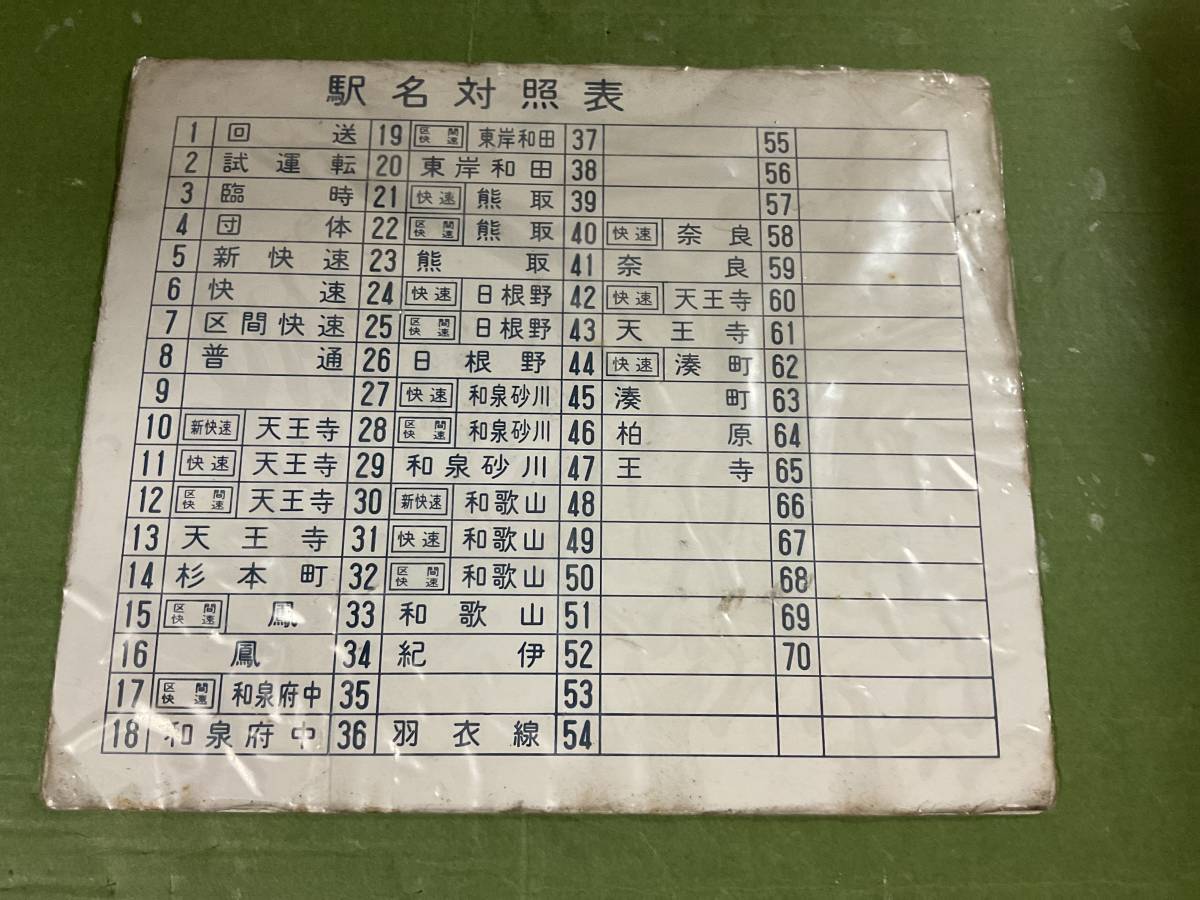 駅名対照表
1 回送 19 区間快速 東岸和田 37 55
2 試運転 20 東岸和田 38 56
3 臨時 21 快速 熊取 39 57
4 団体 22 区間快速 熊取 40 快速 奈良 58
5 新快速 23 熊取 41 奈良 59
6 快速 24 快速 日根野 42 快速 天王寺 60
7 区間快速 25 区間快速 日根野 43 天王寺 61
8 普通 26 日根野 44 快速 湊町 62
9 27 快速 和泉砂川 45 湊町 63
10 新快速 天王寺 28 区間快速 和泉砂川 46 柏原 64
11 快速 天王寺 29 和泉砂川 47 王寺 65
12 区間快速 天王寺 30 新快速 和歌山 48 66
13 天王寺 31 快速 和歌山 49 67
14 杉本町 32 区間快速 和歌山 50 68
15 区間快速 鳳 33 和歌山 51 69
16 鳳 34 紀伊 52 70
17 区間快速 和泉府中 35 53
18 和泉府中 36 羽衣線 54